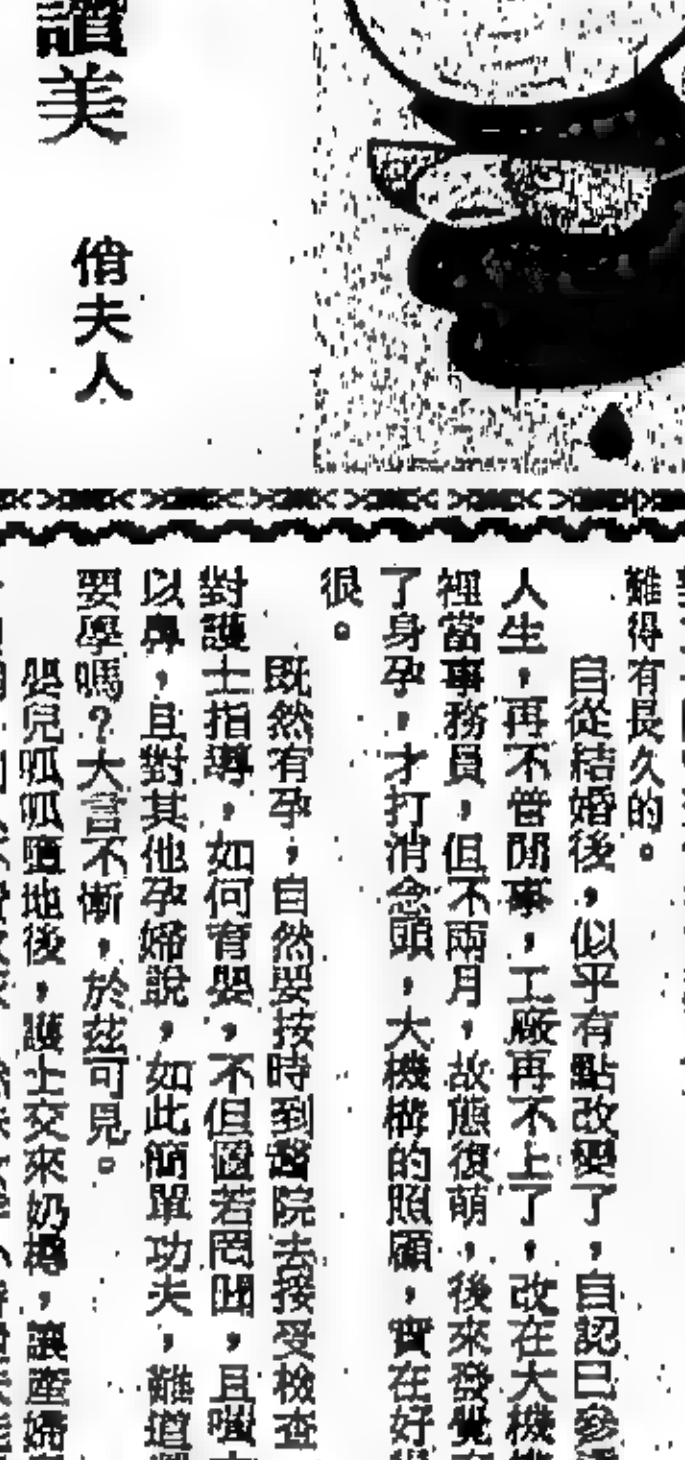 讚美
俏夫人
難得有長久的。
自從結婚後，似乎有點改變了，自認已參
人生，再不管閒事，工廠再不上了，改在大機
裡當事務員，但不兩月，故態復萌，後來發覺
了身孕，才打消念頭，大機構的照顧，實在好
很。
既然有孕，自然要按時到醫院去接受檢查
對護士指導，如何育嬰，不但置若罔聞，且嗤
以鼻，且對其他孕婦說，如此簡單功夫，難道
要學嗎？大言不慚，於茲可見。
嬰兒呱呱墮地後，護士交來奶樽，讓產婦